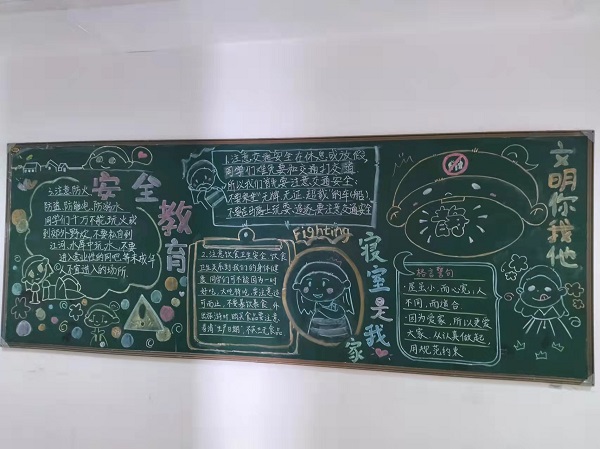 安全教育
3.注意防火
防盗,防触电,防溺水
同学们千万不能玩火或
到郊外野炊,不要私自到
江河,水库中玩水,不要
进入营业性的网吧等未成年
人不宜进入的场所
1.注意交通安全在休息或放假,
同学们难免要和交通打交道
所以我们首先要注意交通安全:
不要乘坐"无牌,无证,超载的车(船)
不要在公路上玩耍,追逐,要注意交通安全
2.注意饮食卫生安全 饮食
卫生关系到我们的身体健
康 同学们可不能因为一时
好吃,大吃特吃,要注意适
可而止,不要暴饮暴食,外
出旅游时购买食品要注意
看清"生产日期"不买三无食品
Fighting
寝室是我家
文明你我他
格言警句
·屋虽小,而心宽,人
不同,而道合
·因为爱家,所以更爱
大家,从认真做起
用规范约束